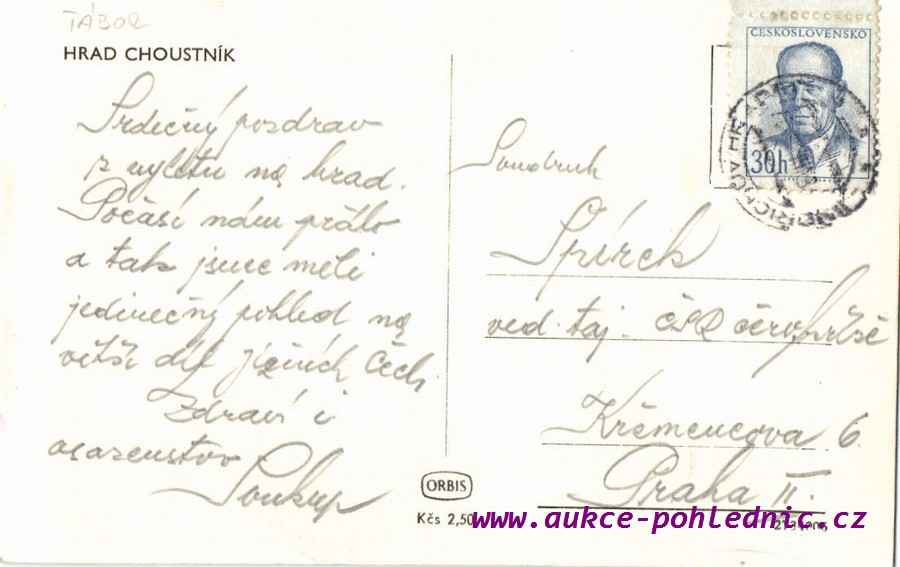 TÁBOR
HRAD CHOUSTNÍK
Srdečný pozdrav
z výletu na hrad.
Počasí nám přálo
a tak jsme měli
jedinečný pohled na
větší díl jižních Čech.
Zdraví i
osazenstvo
Soukup
ČESKOSLOVENSKO
30h
Soudruh
Spírek
ved. taj. ČSČK
Křemencova 6.
Praha II.
ORBIS
Kčs 2,50
www.aukce-pohlednic.cz